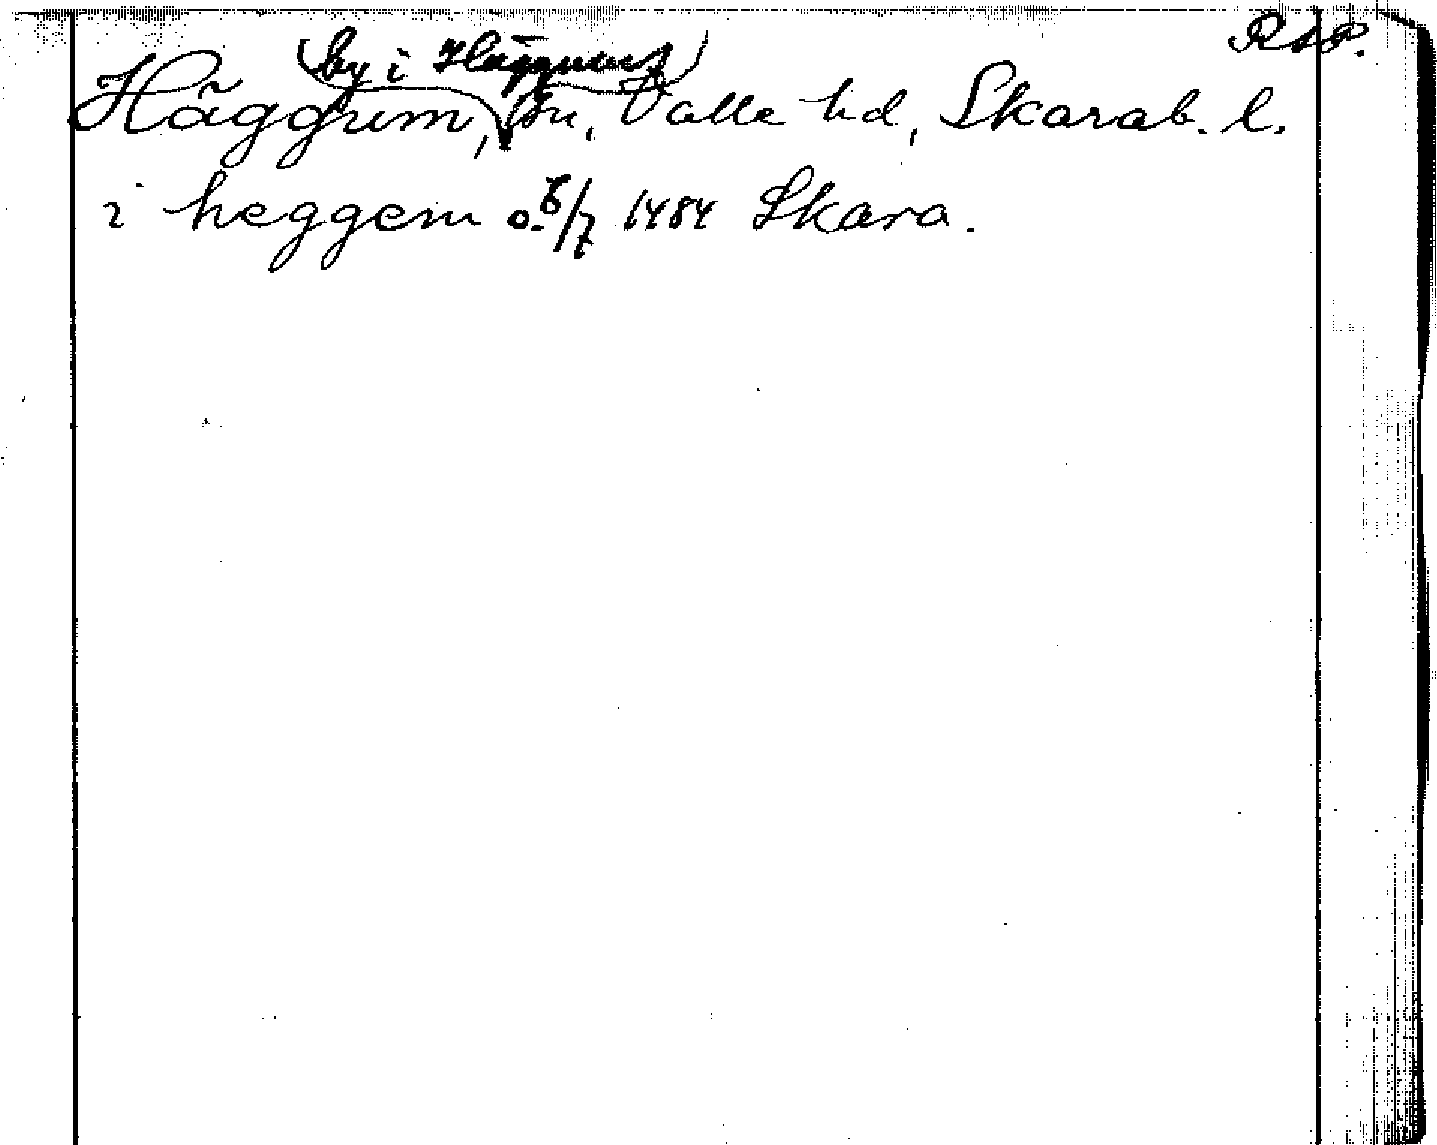 RAP.
(by i Häggums)
Häggum, sn, Valle hd, Skarab. l.
i heggem o. 6/7 1484 Skara.